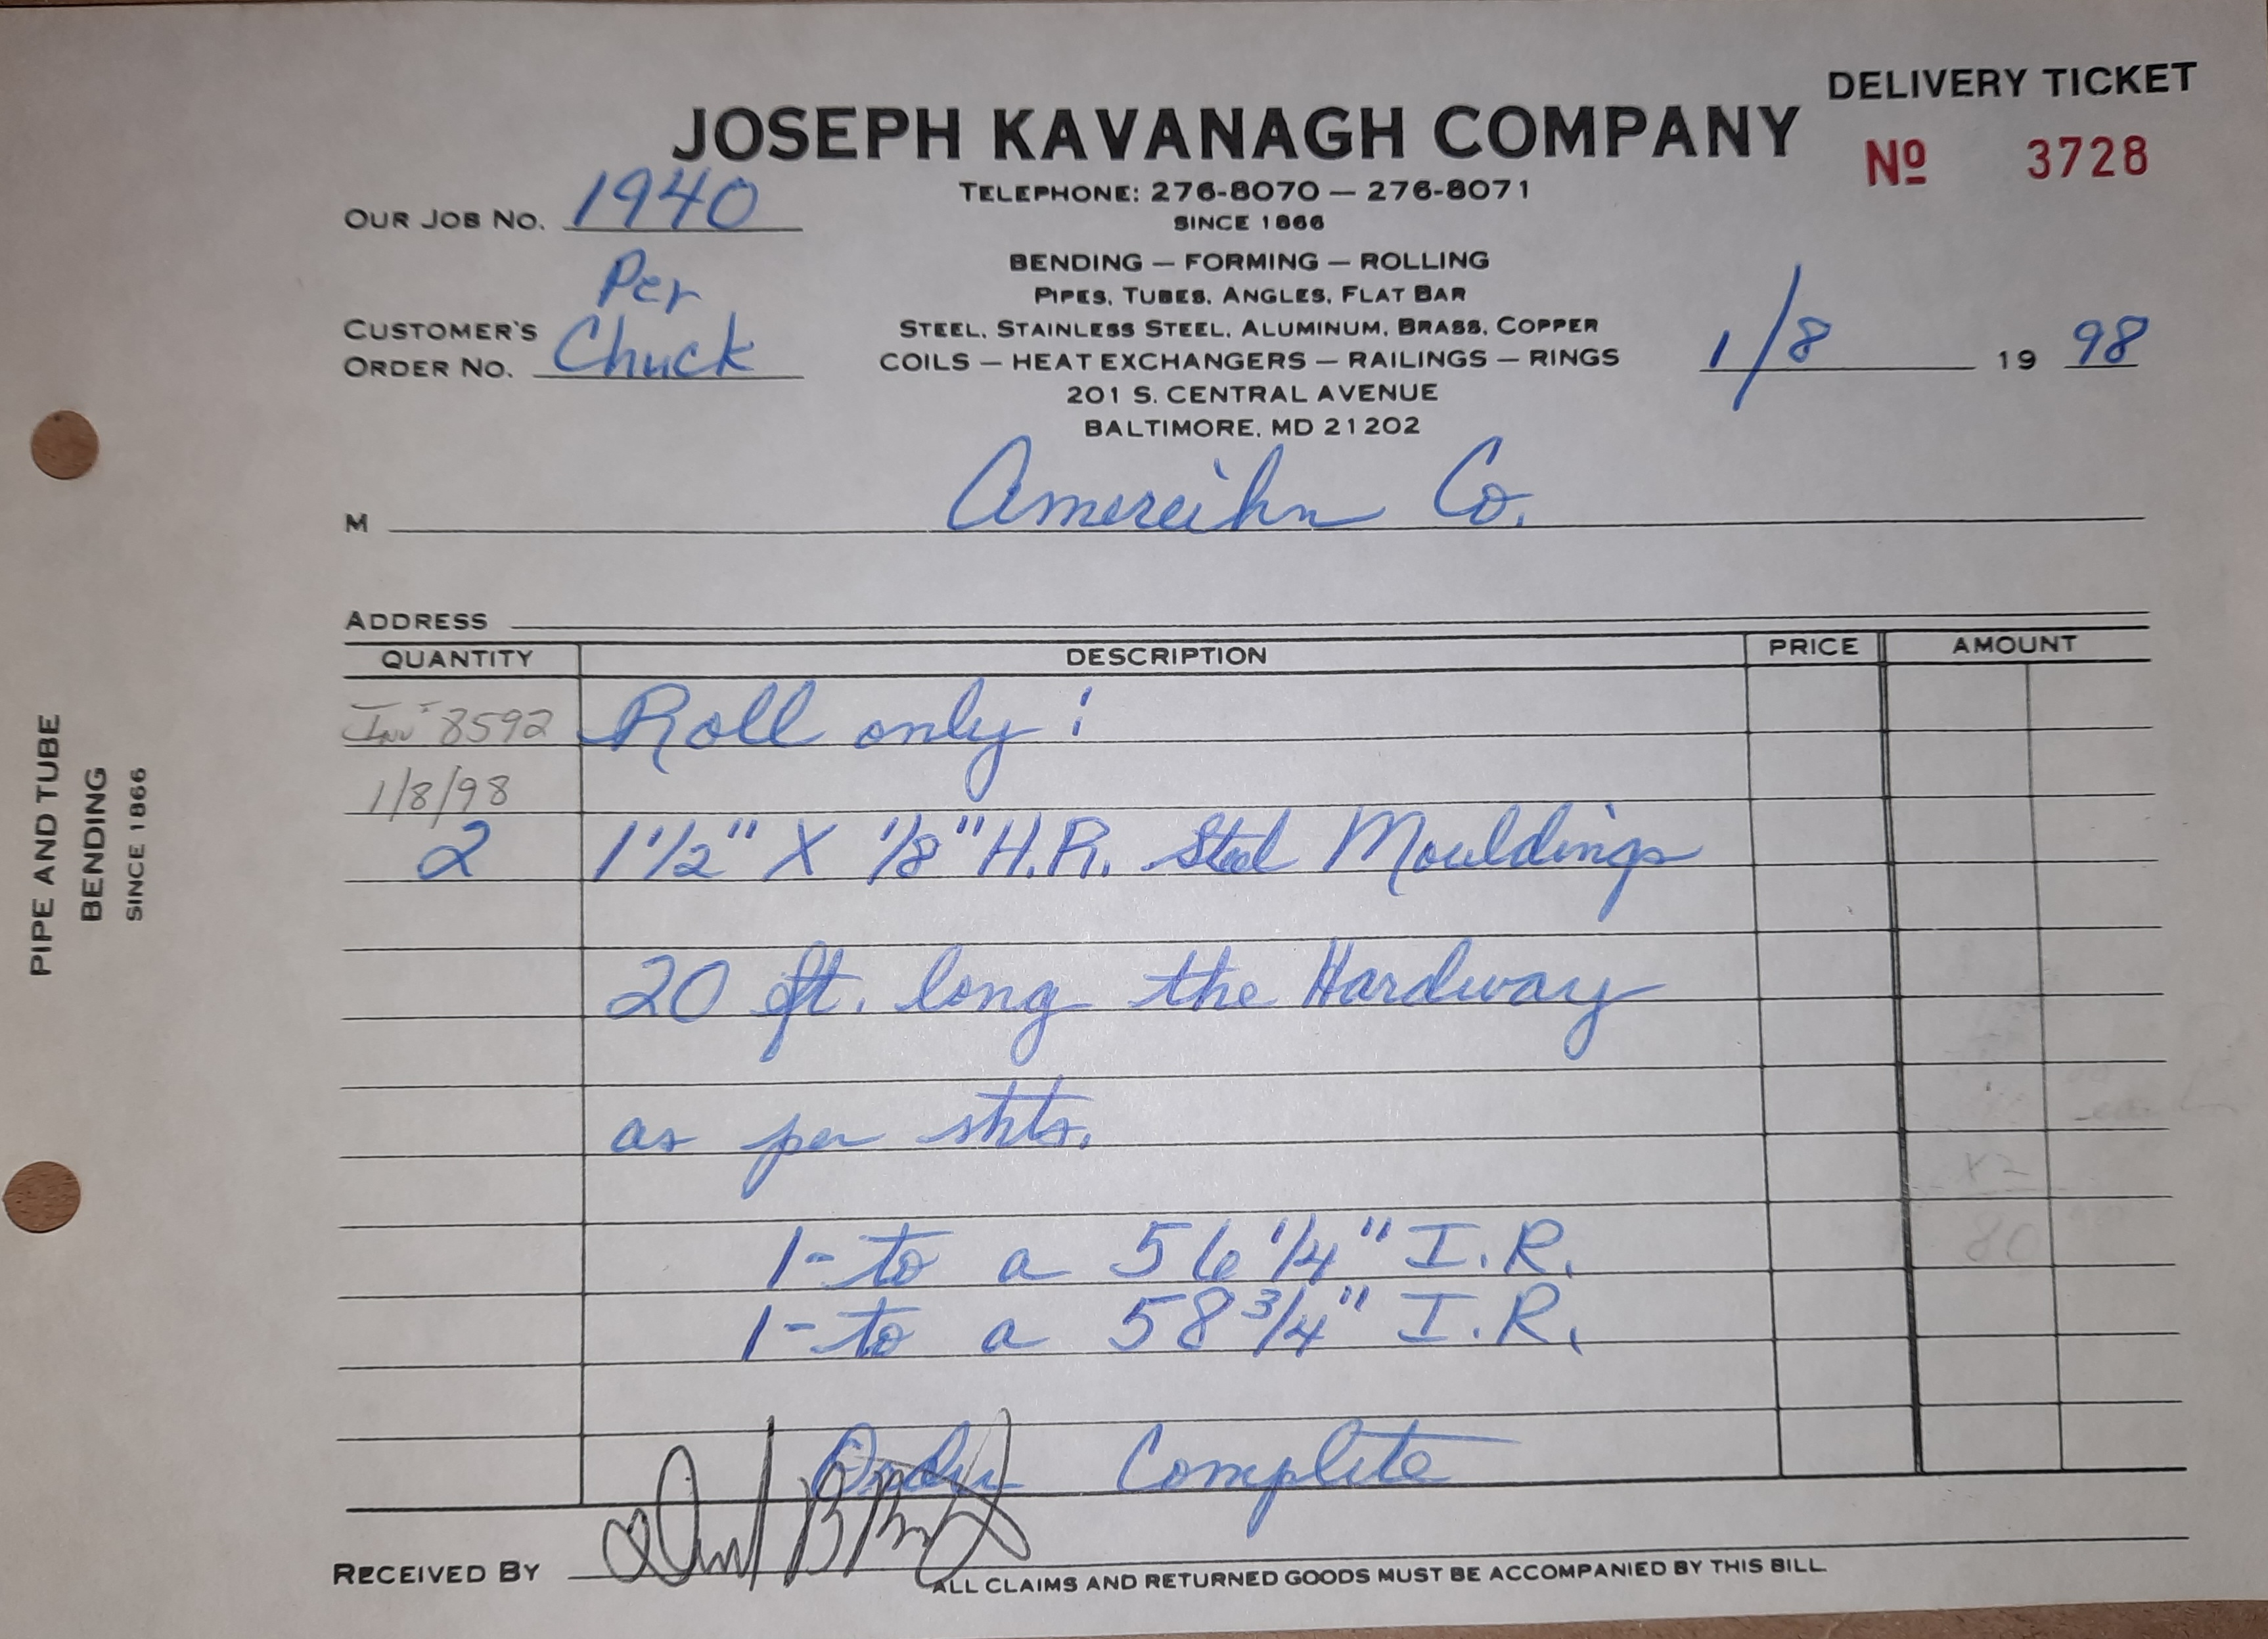 DELIVERY TICKET
JOSEPH KAVANAGH COMPANY
Nº 3728
TELEPHONE: 276-8070 — 276-8071
OUR JOB NO. 1940
SINCE 1866
BENDING — FORMING — ROLLING
PIPES, TUBES, ANGLES, FLAT BAR
CUSTOMER'S ORDER NO. Per Chuck
STEEL, STAINLESS STEEL, ALUMINUM, BRASS, COPPER
COILS — HEAT EXCHANGERS — RAILINGS — RINGS
1/8 19 98
201 S. CENTRAL AVENUE
BALTIMORE, MD 21202
M Amereihn Co.
ADDRESS
QUANTITY DESCRIPTION PRICE AMOUNT
Inv 8592 Roll only:
1/8/98
2 1 1/2" X 1/8" H.R. Steel Mouldings
20 ft. long the Hardway
as per shts.
X2
1- to a 56 1/4" I.R.
80
1- to a 58 3/4" I.R.
Order Complete
RECEIVED BY
ALL CLAIMS AND RETURNED GOODS MUST BE ACCOMPANIED BY THIS BILL
PIPE AND TUBE
BENDING
SINCE 1866